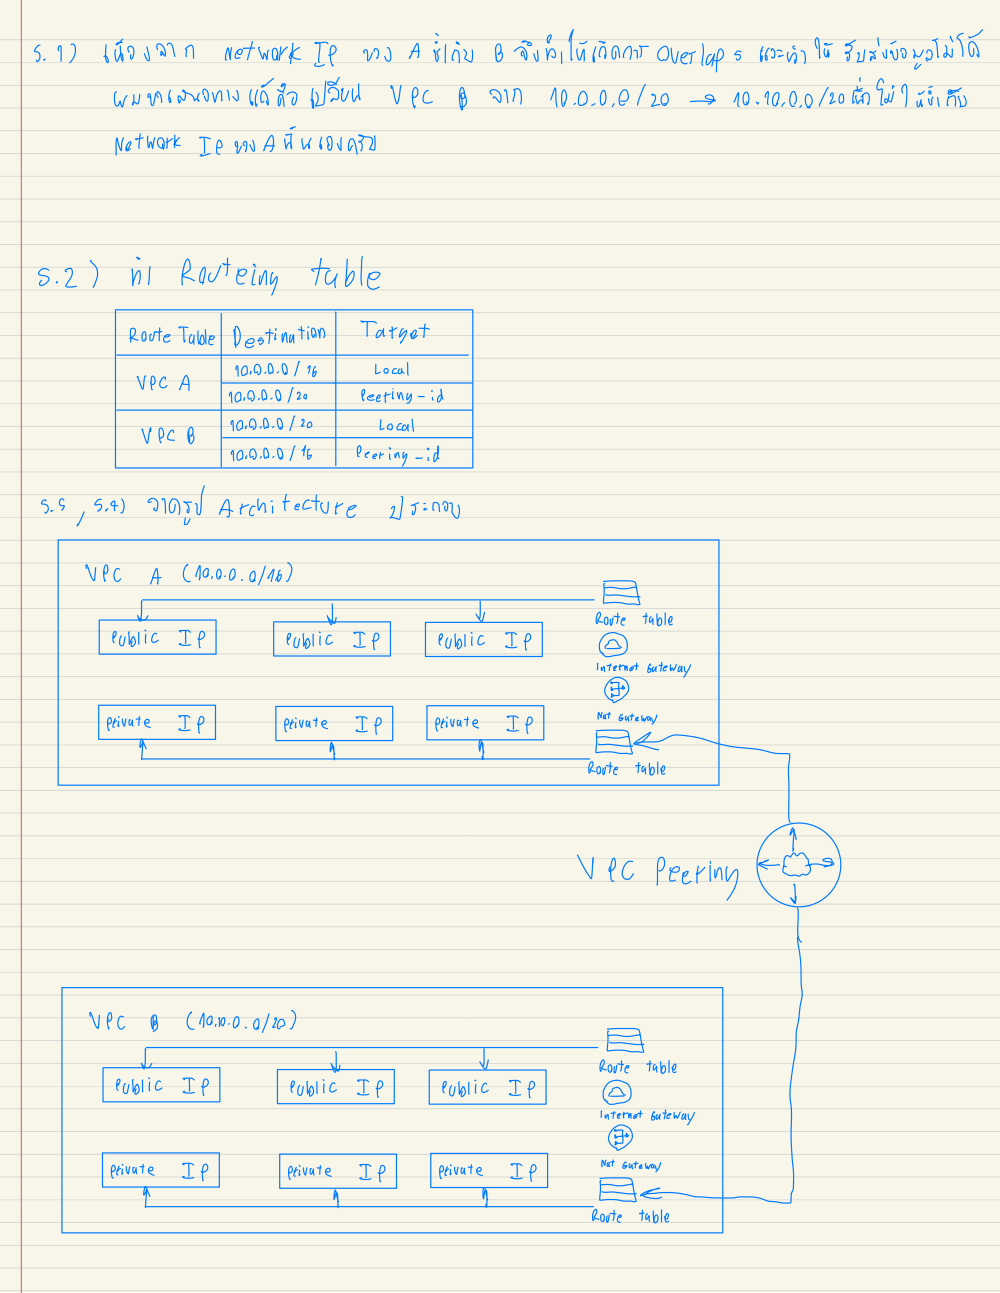 5.1) เนื่องจาก Network IP ของ A ซ้ำกับ B จึงทำให้เกิดการ Overlaps และทำให้ รับส่งข้อมูลไม่ได้
ผมขอเสนอทางแก้คือ เปลี่ยน VPC B จาก 10.0.0.0/20 → 10.10.0.0/20 เพื่อไม่ให้ซ้ำกับ
Network IP ของ A นั้นเองครับ
5.2) ทำ Routeing table
Route Table Destination Target
VPC A 10.0.0.0/16 Local
10.0.0.0/20 Peering-id
VPC B 10.0.0.0/20 Local
10.0.0.0/16 Peering-id
5.3, 5.4) วาดรูป Architecture ประกอบ
VPC A (10.0.0.0/16)
Route table
Public IP Public IP Public IP
Internet Gateway
Nat Gateway
Private IP Private IP Private IP
Route table
VPC Peering
VPC B (10.10.0.0/20)
Route table
Public IP Public IP Public IP
Internet Gateway
Nat Gateway
Private IP Private IP Private IP
Route table